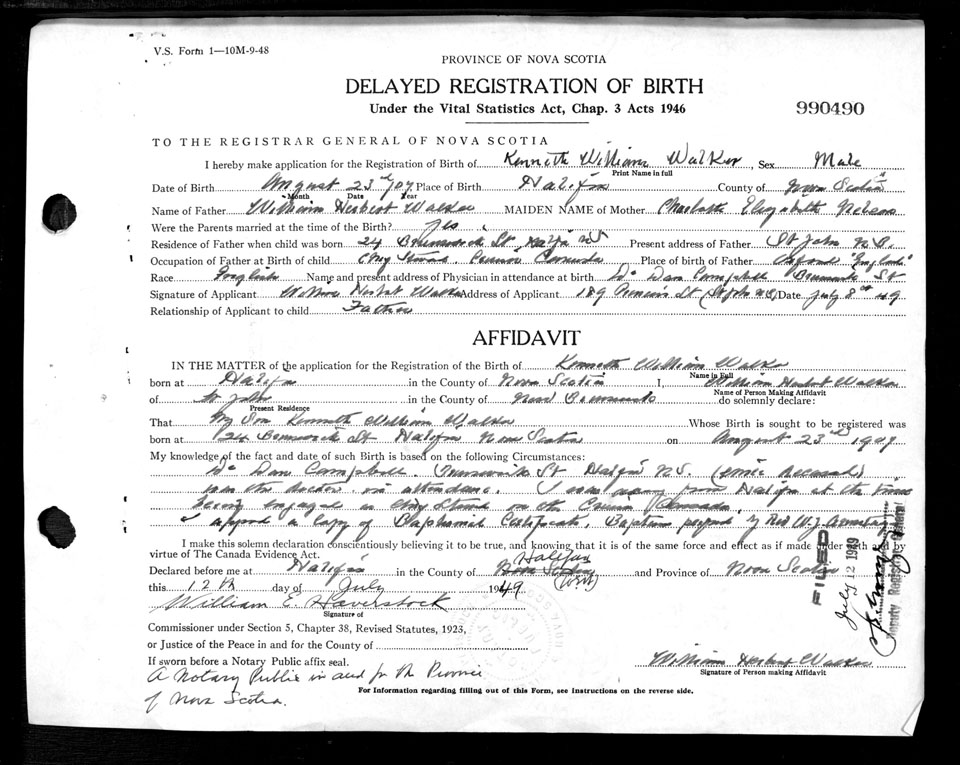 V.S. Form 1—10M-9-48
PROVINCE OF NOVA SCOTIA
DELAYED REGISTRATION OF BIRTH
Under the Vital Statistics Act, Chap. 3 Acts 1946
990490
TO THE REGISTRAR GENERAL OF NOVA SCOTIA
I hereby make application for the Registration of Birth of Kenneth William Walker, Sex Male
Print Name in full
Date of Birth August 23rd 1907 Place of Birth Halifax County of Nova Scotia
Month Date Year
Name of Father William Herbert Walker MAIDEN NAME of Mother Charlotte Elizabeth
Were the Parents married at the time of the Birth? Yes
Residence of Father when child was born 24 Brunswick St Halifax N S Present address of Father St John N.B.
Occupation of Father at Birth of child Chief Steward Place of birth of Father Oxford "England"
Race English Name and present address of Physician in attendance at birth Dr Dan Campbell Brunswick St
Signature of Applicant William Herbert Walker Address of Applicant 189 St (St John N.B.) Date July 8th 49
Relationship of Applicant to child Father
AFFIDAVIT
IN THE MATTER of the application for the Registration of the Birth of Kenneth William Walker
Name in Full
born at Halifax in the County of Nova Scotia I, William Herbert Walker
Name of Person Making Affidavit
of St John in the County of New Brunswick do solemnly declare:
Present Residence
That My Son Kenneth William Walker Whose Birth is sought to be registered was
born at 24 Brunswick St Halifax Nova Scotia on August 23rd 1907
My knowledge of the fact and date of such Birth is based on the following Circumstances:
Dr Dan Campbell. Brunswick St Halifax N.S. (since deceased)
was the doctor in attendance. I was away from Halifax at the time
being engaged as Chief Steward on the
I append a copy of Baptismal Certificate, Baptism by Rev W. J.
I make this solemn declaration conscientiously believing it to be true, and knowing that it is of the same force and effect as if made under oath and by
virtue of The Canada Evidence Act.
Declared before me at Halifax in the County of Nova Scotia Halifax and Province of Nova Scotia
this 12th day of July 1949
William E. Haverstock
Signature of
Commissioner under Section 5, Chapter 38, Revised Statutes, 1923,
or Justice of the Peace in and for the County of
If sworn before a Notary Public affix seal.
A Notary Public in and for the Province
of Nova Scotia.
William Herbert Walker
Signature of Person making Affidavit
For Information regarding filling out of this Form, see Instructions on the reverse side.
FILED
July 12 1949
Deputy Registrar General